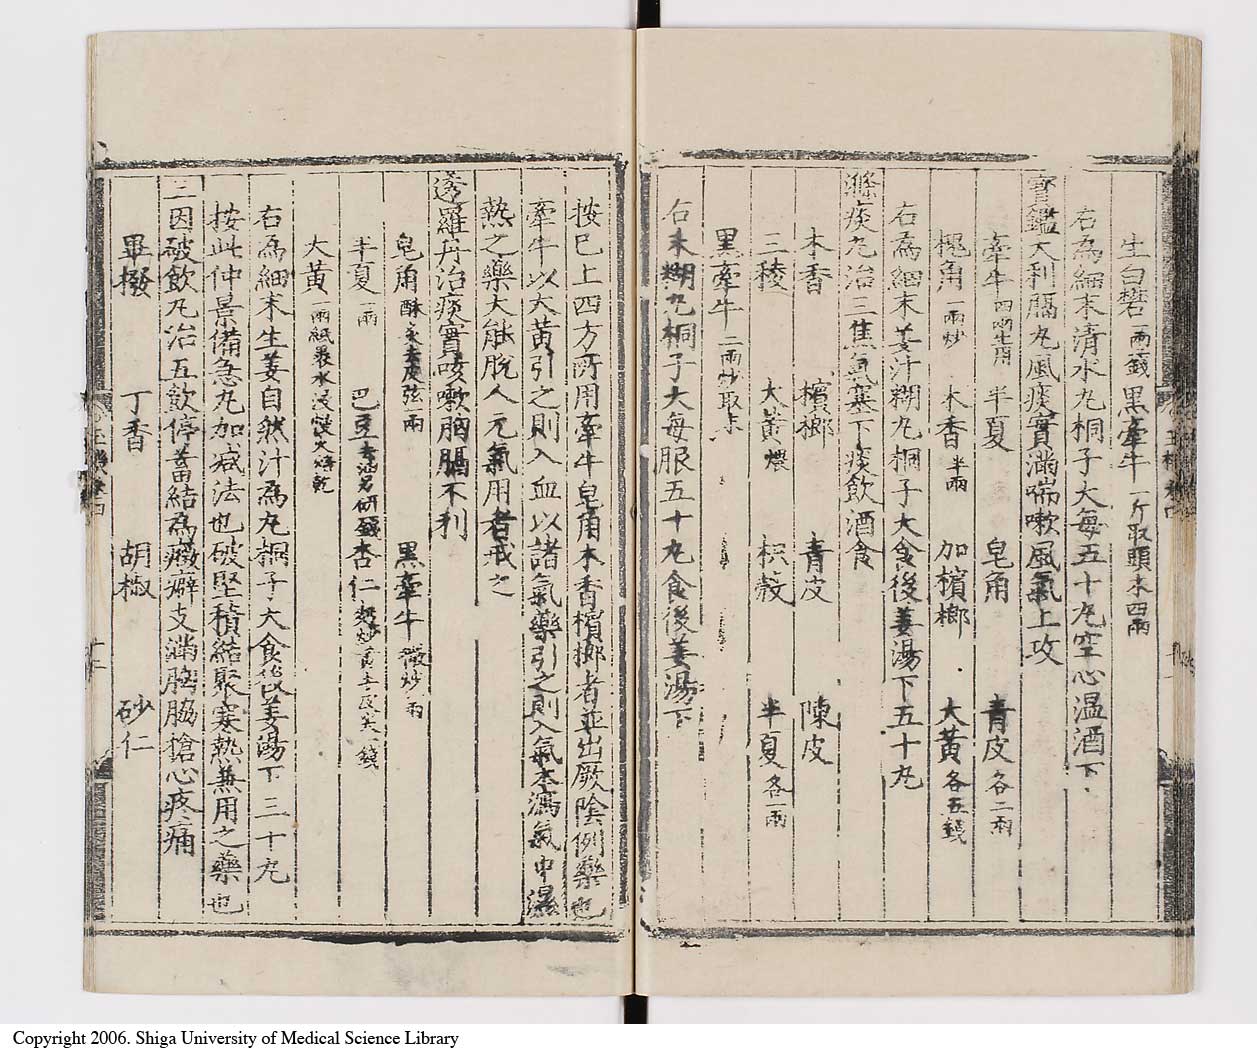 生白礬一兩 黑牽牛一斤取頭末四兩
右爲細末清水丸桐子大每五十丸空心溫酒下
寶鑑大利膈丸風痰實滿喘嗽風氣上攻
牽牛四兩生用 半夏 皂角 青皮各二兩
槐角一兩炒 木香半兩 加檳榔 大黃各五錢
右爲細末姜汁糊丸桐子大食後姜湯下五十丸
滌痰丸治三焦氣塞下痰飲酒食
木香 檳榔 青皮 陳皮
三稜 大黃煨 枳殼 半夏各一兩
黑牽牛二兩炒取末
右末糊丸桐子大每服五十丸食後姜湯下
按已上四方所用牽牛皂角木香檳榔者並出厥陰例藥也
牽牛以大黃引之則入血以諸氣藥引之則入氣本瀉氣中濕
熱之藥大能脫人元氣用者戒之
透羅丹治痰實咳嗽胸膈不利
皂角酥炙去皮弦一兩 黑牽牛微炒一兩
半夏一兩 巴豆去油另研一錢 杏仁麩炒去皮尖一錢
大黃一兩紙裹水浸煨火焙乾
右爲細末生姜自然汁爲丸桐子大食後以姜湯下三十丸
按此仲景備急丸加減法也破堅積結聚寒熱兼用之藥也
三因破飲丸治五飲停蓄結爲癥癖支滿胸脇搶心疼痛
蓽撥 丁香 胡椒 砂仁
Copyright 2006. Shiga University of Medical Science Library